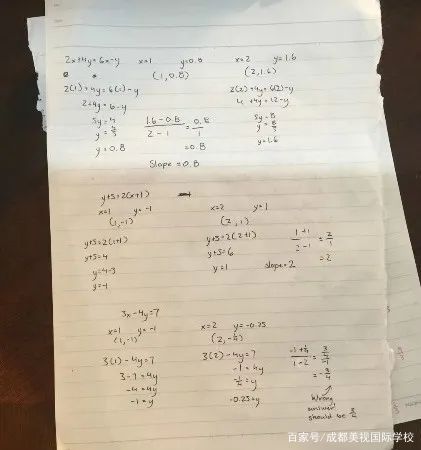 2x+4y=6x-y x=1 y=0.8 x=2 y=1.6
(1,0.8) (2,1.6)
2(1)+4y=6(1)-y 2(2)+4y=6(2)-y
2+4y=6-y 4+4y=12-y
5y=4 1.6-0.8/2-1 = 0.8/1 5y=8
y=4/5 =0.8 y=8/5
y=0.8 y=1.6
slope=0.8
y+3=2(x+1)
x=1 y=-1 x=2 y=1
(1,-1) (2,1)
y+3=2(1+1) y+3=2(2+1) 1+1/2-1 = 2/1
y+3=4 y+3=6 =2
y=4-3 y=1 slope=2
y=-1
3x-4y=7
x=1 y=-1 x=2 y=-0.25
(1,-1) (2,-1/4)
3(1)-4y=7 3(2)-4y=7 -1+1/4/1-2 = 3/4/-1
3-7=4y -1=4y =-3/4
-4=4y -1/4=y
-1=y -0.25=y
Wrong
answer
should be 3/4
百家号/成都美视国际学校